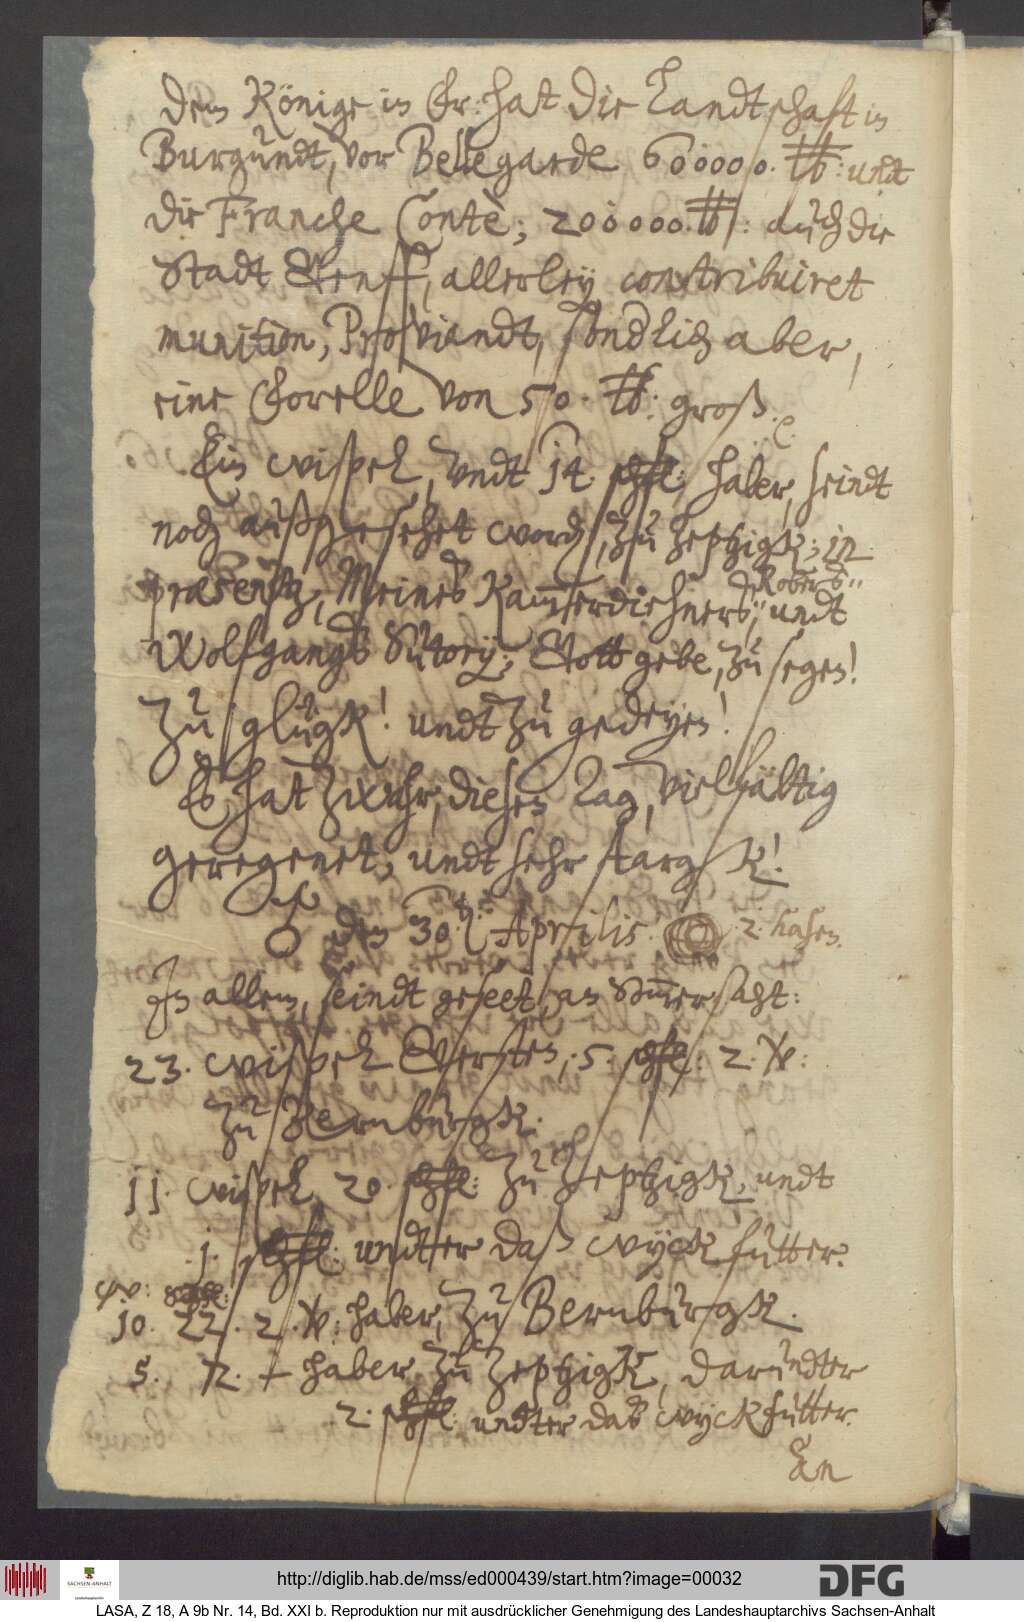 Dem Könige in Fr: hat die Landtschaft in
Burgundt, vor Bellegarde 600000. ℔: undt
die Franche Contè; 200000. ℔: auch die
Stadt Genff, allerley contribuiret
munition, Proviandt, endlich aber,
eine Forelle von 50. ℔: groß.
Ein wispel, undt 14 schfl: haber, seindt
noch außgesehet word, zu Zeptzigk; in
præsentz, Meines Kammerdiehners,
Wolfgangs Sutorij; Gott gebe, zu segen!
undt
zu glügk! undt zu gedeyen!
Es hat zwahr, diesen Tag, vielfältig
geregenet, undt sehr starg k!
♂ den 30. Aprilis. 2. hasen.
In allem, seindt geseet, an Sommersaht:
23. wispel Gersten, 5. schfl: 2. V:
zu Bernburgk.
11. wispel 20. schfl: zu Zeptzigk, undt
1. schfl: undter daß wyckfutter.
w: schfl:
10. 22. 2. V: haber, zu Bernburgk.
5. 12. + haber zu Zeptzigk, darundter
2. schfl: undter das wyckfutter.
An
http://diglib.hab.de/mss/ed000439/start.htm?image=00032
DFG
SACHSEN-ANHALT
LASA, Z 18, A 9b Nr. 14, Bd. XXI b. Reproduktion nur mit ausdrücklicher Genehmigung des Landeshauptarchivs Sachsen-Anhalt